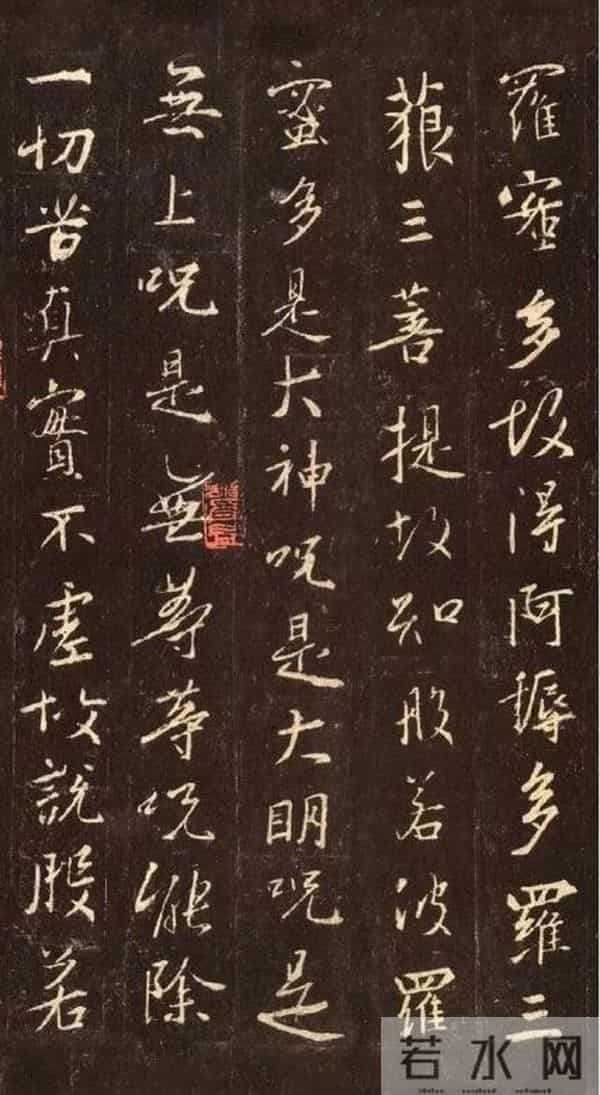 羅蜜多故得阿耨多羅三
藐三菩提故知般若波羅
蜜多是大神呪是大明呪是
無上呪是無等等呪能除
一切苦真實不虛故說般若
若水网